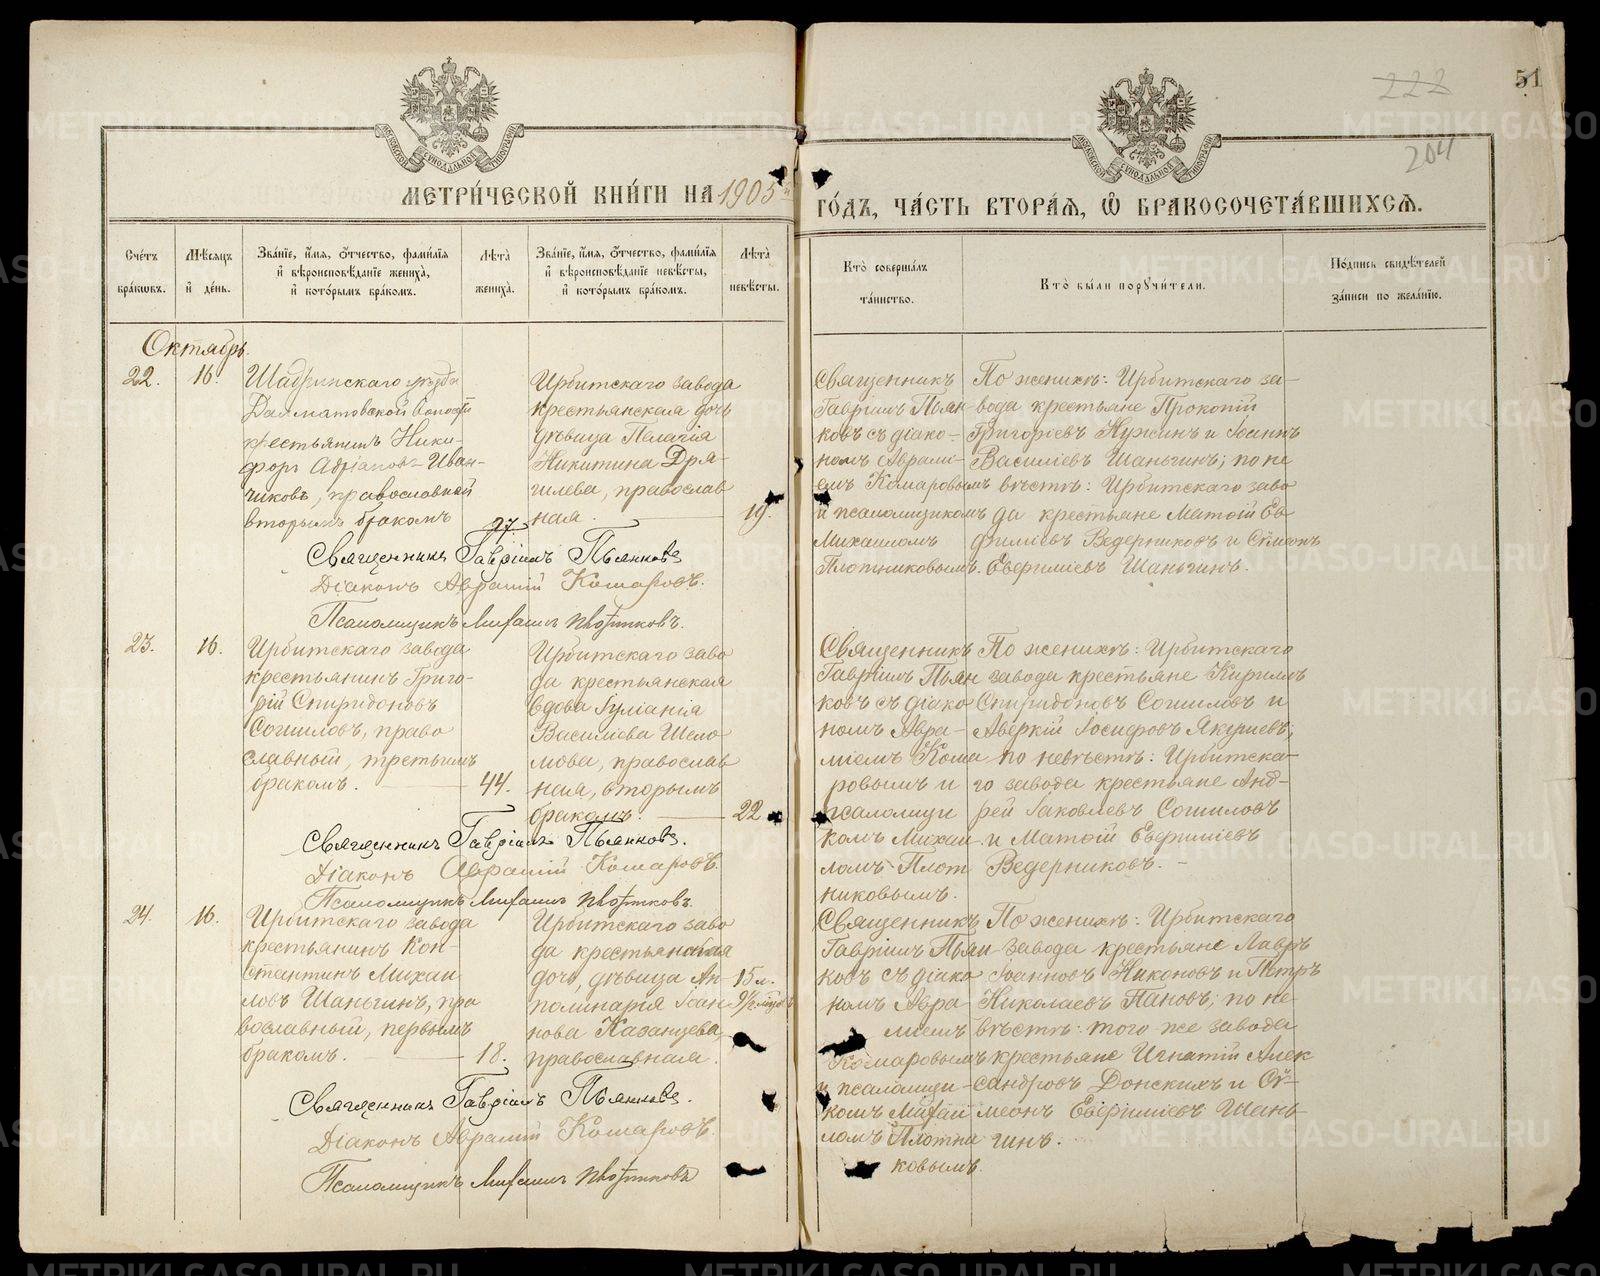 222
51
204
МОСКОВСКОЙ СѴНОДАЛЬНОЙ ТИПОГРАФІИ
МОСКОВСКОЙ СѴНОДАЛЬНОЙ ТИПОГРАФІИ
МЕТРИ́ЧЕСКОЙ КНИ́ГИ НА 1905й ГО́ДЪ, ЧА́СТЬ ВТОРА́Я, Ѡ БРАКОСОЧЕТА́ВШИХСЯ.
Сче́тъ бра́кѡвъ.
Мѣ́сяцъ и҆ де́нь.
Зва́нїе, и҆́мя, ѻ҆́тчество, фами́лїя и҆ вѣроисповѣ́данїе жениха̀, и҆ кото́рымъ бра́комъ.
Лѣ́та жениха̀.
Зва́нїе, и҆́мя, ѻ҆́тчество, фами́лїя и҆ вѣроисповѣ́данїе невѣ́сты, и҆ кото́рымъ бра́комъ.
Лѣ́та невѣ́сты.
Кто̀ соверша́лъ та́инство.
Кто̀ бы́ли порꙋчи́тели.
По́дпись свидѣ́телей за́писи по жела́нїю.
Октябрь.
22.
16.
Шадринскаго уѣзда
Далматовской волости
крестьянинъ Ники-
форъ Адріановъ Иван-
чиковъ, православный
вторымъ бракомъ
27.
Ирбитскаго завода
крестьянская дочь
дѣвица Пелагія
Никитина Дря-
гилева, православ
ная.
19.
Священникъ
Гавріилъ Пьян
ковъ съ діако-
номъ Аврамі-
емъ Комаровымъ
и псаломщикомъ
Михаиломъ
Плотниковымъ.
По женихѣ: Ирбитскаго за-
вода крестьяне Прокопій
Григоріевъ Нужинъ и Іоаннъ
Василіевъ Шаньгинъ; по не
вѣстѣ: Ирбитскаго заво
да крестьяне Матѳій Ев
фиміевъ Ведерниковъ и Сѵмеонъ
Евфиміевъ Шаньгинъ.
Священникъ Гавріилъ Пьянковъ
Діаконъ Аврамій Комаровъ.
Псаломщикъ Михаилъ Плотниковъ.
23.
16.
Ирбитскаго завода
крестьянинъ Григо-
рій Спиридоновъ
Сошиловъ, право
славный, третьимъ
бракомъ.
44.
Ирбитскаго заво
да крестьянская
вдова Іуліанія
Василіева Шело
мова, православ
ная, вторымъ
бракомъ.
22
Священникъ
Гавріилъ Пьян
ковъ съ діако
номъ Авра-
міемъ Кома
ровымъ и
псаломщи
комъ Михаи
ломъ Плот
никовымъ.
По женихѣ: Ирбитскаго
завода крестьяне Кириллъ
Спиридоновъ Сошиловъ и
Аверкій Іосифовъ Якушевъ;
по невѣстѣ: Ирбитска-
го завода крестьяне Анд-
рей Іаковлевъ Сошиловъ
и Матѳій Евфиміевъ
Ведерниковъ.
Священникъ Гавріилъ Пьянковъ.
Діаконъ Аврамій Комаровъ.
Псаломщикъ Михаилъ Плотниковъ.
24.
16.
Ирбитскаго завода
крестьянинъ Кон-
стантинъ Михаи
ловъ Шаньгинъ, пра
вославный, первымъ
бракомъ.
18.
Ирбитскаго заво
да крестьянская
дочь, дѣвица Ап-
полинарія Іоан
нова Казанцева,
православная.
15 л.
9½ мѣсяц
Священникъ
Гавріилъ Пьян
ковъ съ діако
номъ Авра-
міемъ
Комаровымъ
и псаломщи-
комъ Михаи
ломъ Плотни
ковымъ.
По женихѣ: Ирбитскаго
завода крестьяне Лавръ
Іоанновъ Никоновъ и Петръ
Николаевъ Пановъ; по не
вѣстѣ: того же завода
крестьяне Игнатій Алек
сандровъ Донскихъ и Сѵ-
меонъ Евфиміевъ Шань-
гинъ.
Священникъ Гавріилъ Пьянковъ.
Діаконъ Аврамій Комаровъ.
Псаломщикъ Михаилъ Плотниковъ
METRIKI.GASO-URAL.RU